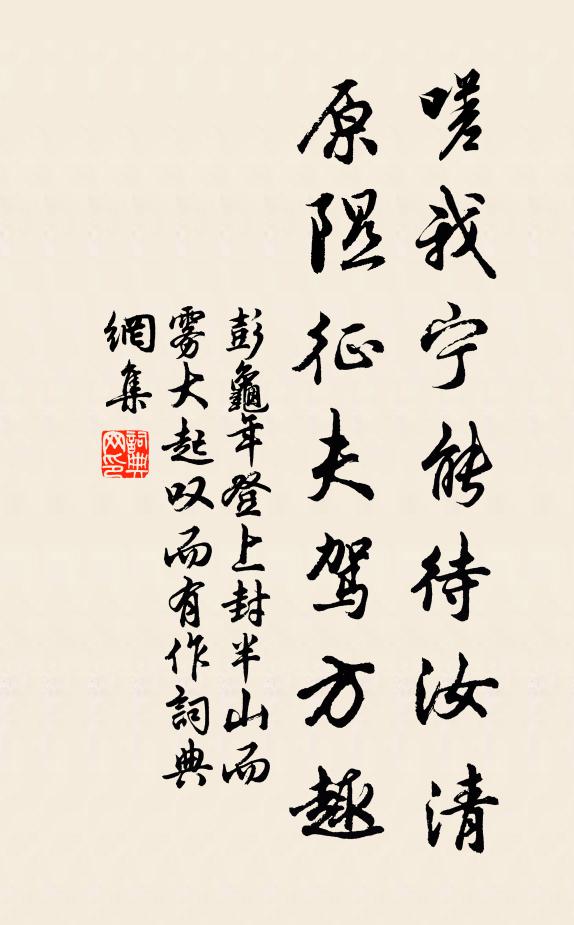 嗟我宁能待汝清
原隰征夫驾方趣
彭龜年登上封半山而
雾大起叹而有作詞典
網集
詞典網印